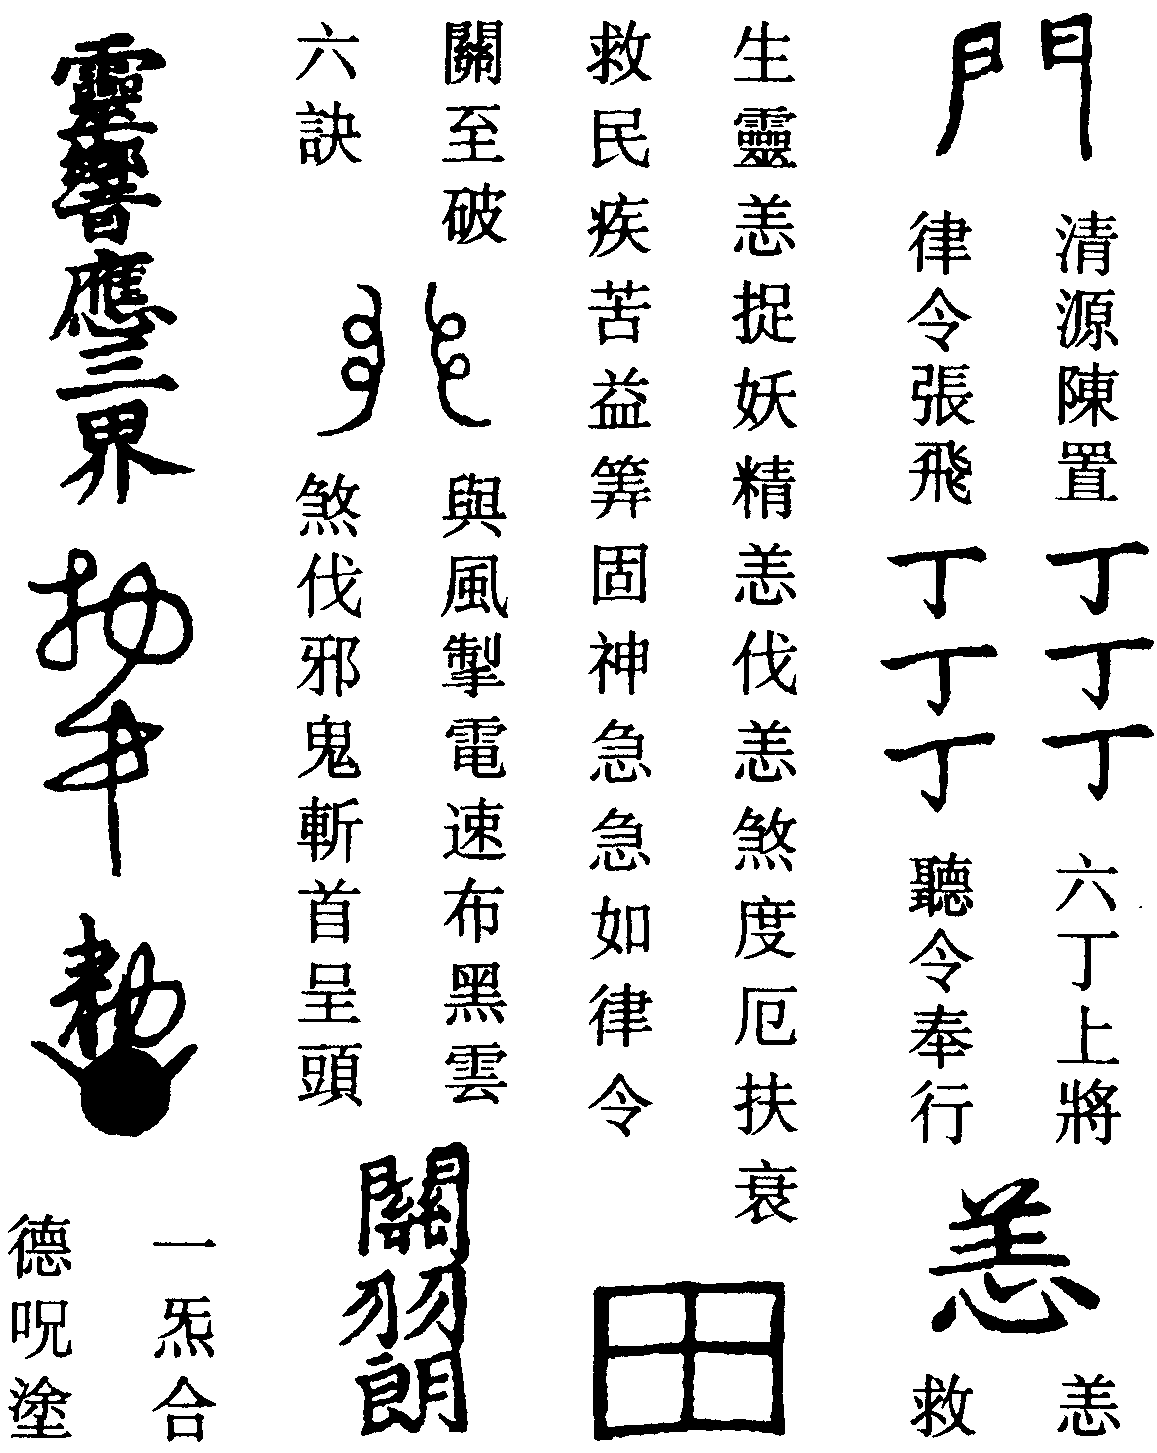 門
清源陳置
律令張飛
丁丁丁
丁丁丁
六丁上將
聽令奉行
恙
恙
救
生靈恙捉妖精恙伐恙煞度厄扶衰
救民疾苦益筭固神急急如律令
田
關至破
六訣
與風掣電速布黑雲
煞伐邪鬼斬首呈頭
關羽朗
靈響應三界
一炁合
德呪塗